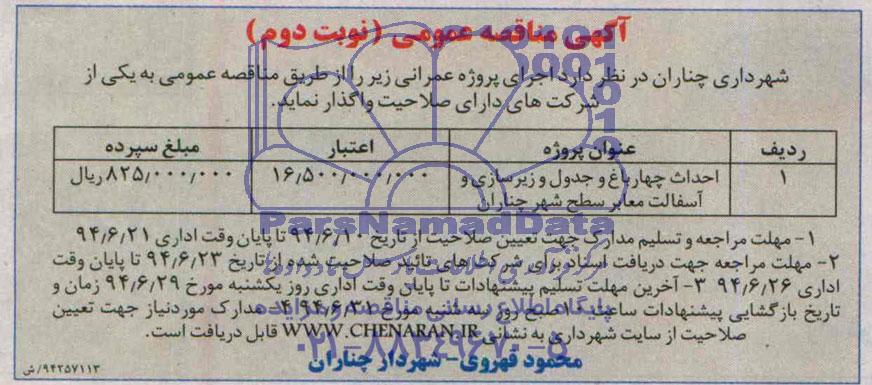 آگهی مناقصه عمومی (نوبت دوم)
شهرداری چناران در نظر دارد اجرای پروژه عمرانی زیر را از طریق مناقصه عمومی به یکی از
شرکت های دارای صلاحیت واگذار نماید.
ردیف عنوان پروژه اعتبار مبلغ سپرده
۱ احداث چهارباغ و جدول و زیرسازی و ۱۶٫۵۰۰٫۰۰۰٫۰۰۰ ۸۲۵٫۰۰۰٫۰۰۰ ریال
آسفالت معابر سطح شهر چناران
ParsNamadData
۱- مهلت مراجعه و تسلیم مدارک جهت تعیین صلاحیت از تاریخ ۹۴٫۶٫۱۰ تا پایان وقت اداری ۹۴٫۶٫۲۱
۲- مهلت مراجعه جهت دریافت اسناد برای شرکت های تائید صلاحیت شده از تاریخ ۹۴٫۶٫۲۳ تا پایان وقت
اداری ۹۴٫۶٫۲۶ ۳- آخرین مهلت تسلیم پیشنهادات تا پایان وقت اداری روز یکشنبه مورخ ۹۴٫۶٫۲۹ زمان و
تاریخ بازگشایی پیشنهادات ساعت ۱۰ صبح روز سه شنبه مورخ ۹۴٫۶٫۳۱ ۴- مدارک موردنیاز جهت تعیین
صلاحیت از سایت شهرداری به نشانی WWW.CHENARAN.IR قابل دریافت است.
۰۲۱-۸۸۳۴۹۶۷۰-۵
محمود قهروی- شهردار چناران
۹۴۲۵۷۱۱۳/ش